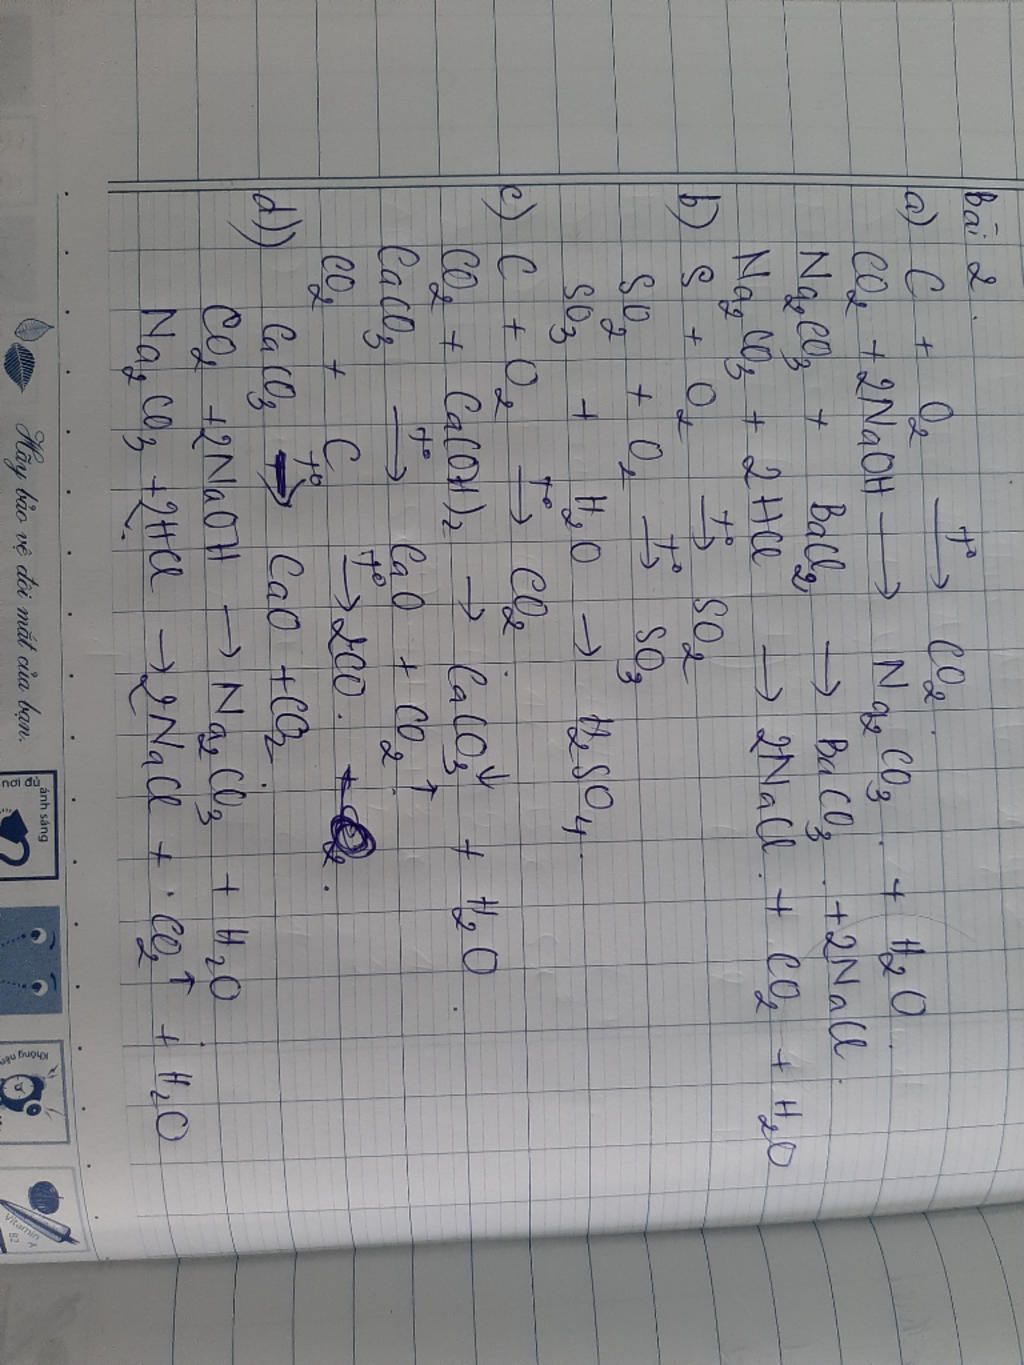 bài 2.
a) C + O₂ —t°→ CO₂.
CO₂ + 2NaOH → Na₂CO₃ + H₂O.
Na₂CO₃ + BaCl₂ → BaCO₃ + 2NaCl.
Na₂CO₃ + 2HCl → 2NaCl + CO₂ + H₂O
b) S + O₂ —t°→ SO₂
SO₂ + O₂ —t°→ SO₃
SO₃ + H₂O → H₂SO₄.
c) C + O₂ —t°→ CO₂
CO₂ + Ca(OH)₂ → CaCO₃↓ + H₂O.
CaCO₃ —t°→ CaO + CO₂↑.
CO₂ + C —t°→ 2CO.
d)) CaCO₃ —t°→ CaO + CO₂.
CO₂ + 2NaOH → Na₂CO₃ + H₂O
Na₂CO₃ + 2HCl → 2NaCl + CO₂↑ + H₂O
Hãy bảo vệ đôi mắt của bạn.
ánh sáng
Không nên
Vitamin A
B2